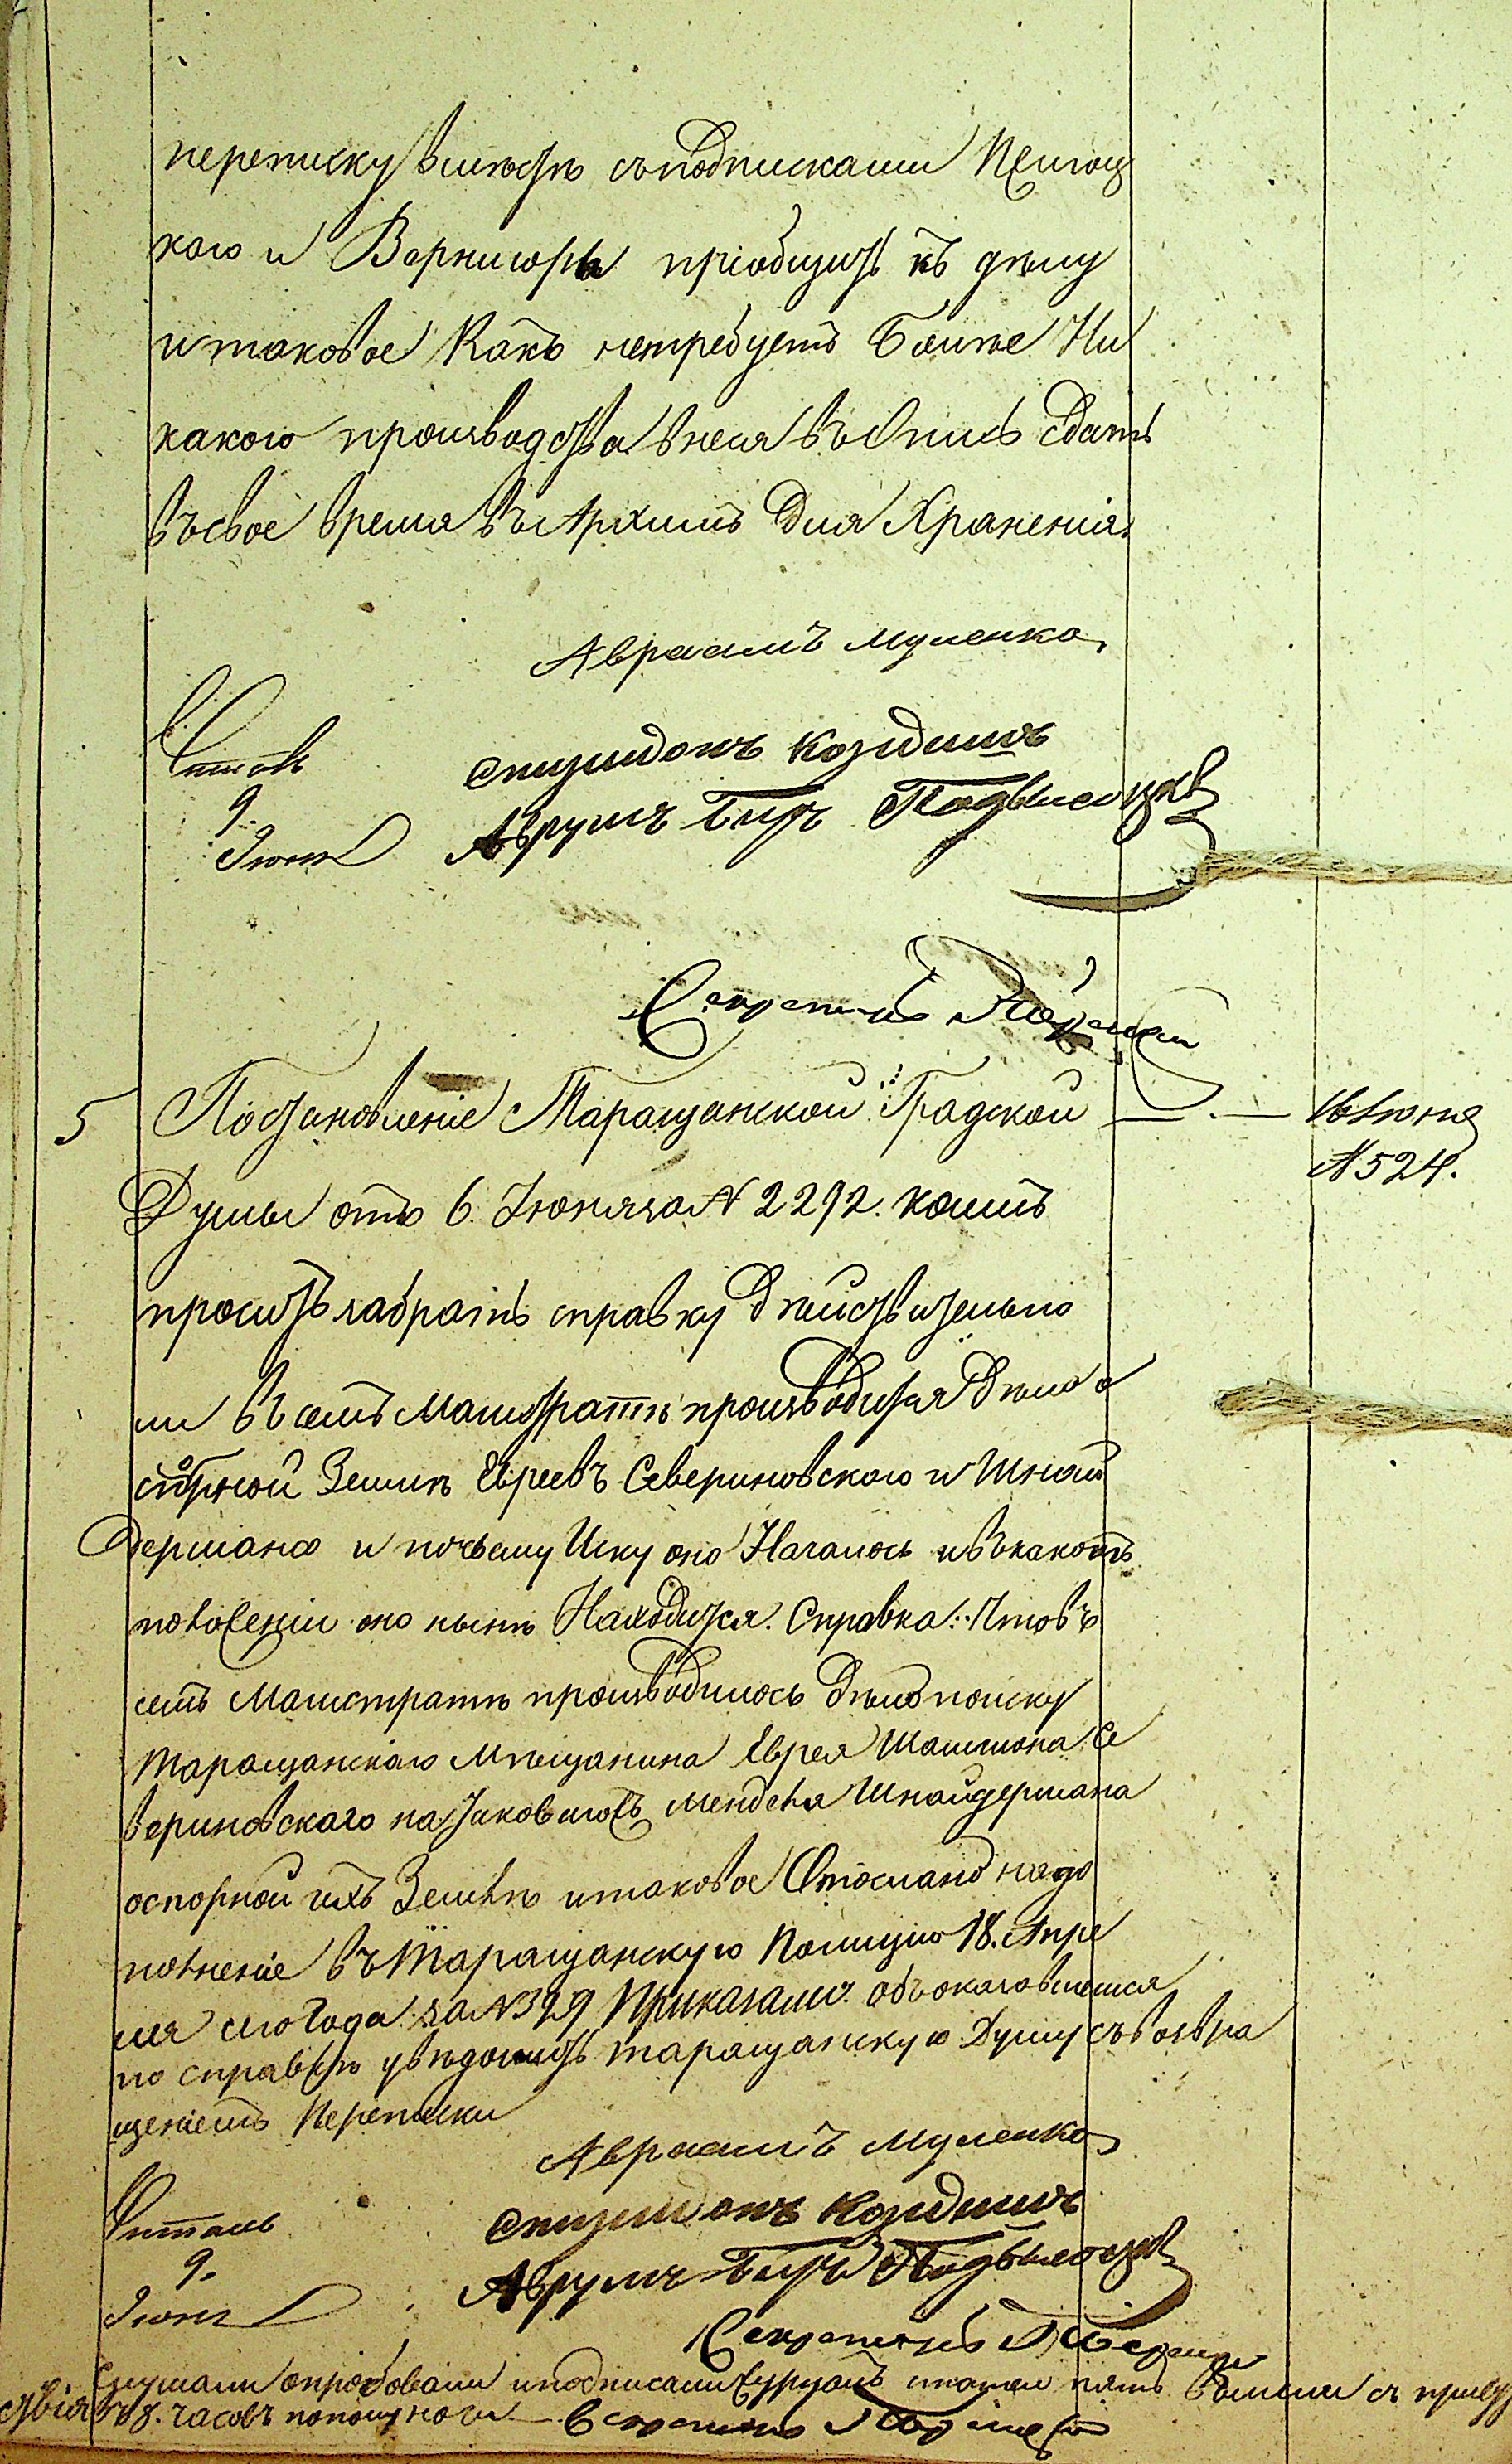 переписку вместѣ съ подписками
кого и Вернигоры пріобщить къ дѣлу
и таковое какъ нетребуетъ более Ни
какого производства внеся въ Опись сдать
въ свое время въ Архивъ для Храненія.
Авраамъ Муленко
Читалъ
9.
Іюня
Аврумъ Подвысоцкій
Секретарь
5 Постановленіе Таращанской Градской
18 Іюня
№ 524.
Думы отъ 6. Іюня за № 2292. коимъ
проситъ забрать справку дѣйствительно
ли въ семъ Магистратѣ производится дѣло о
спорной Земли Евреевъ Севериновского и Шнай
дермана и почьему Иску оно Началось и въ какомъ
положеніи оно нынѣ Находится. Справка: Что въ
семъ Магистратѣ производилось дѣло поиску
таращанскаго Мѣщанина Еврея Шаишона Се
вериновскаго на Іаковлевъ Менделя Шнайдермана
оспорной ихъ Землѣ и таковое Отослано надо
полненіе въ Таращанскую Полицію 18. Апре
ля сего Года за № 329 Приказали: объ оказавшемся
по справкѣ увѣдомить таращанскую Думу съ возвра
щеніемъ Переписки
Авраамъ Муленко
Читалъ
9.
Іюня
Аврумъ Подвысоцкій
Секретарь
Слушали опробовали и подписали статей пять вышли съ присут
ствія въ 8. часовъ пополуночи Секретарь